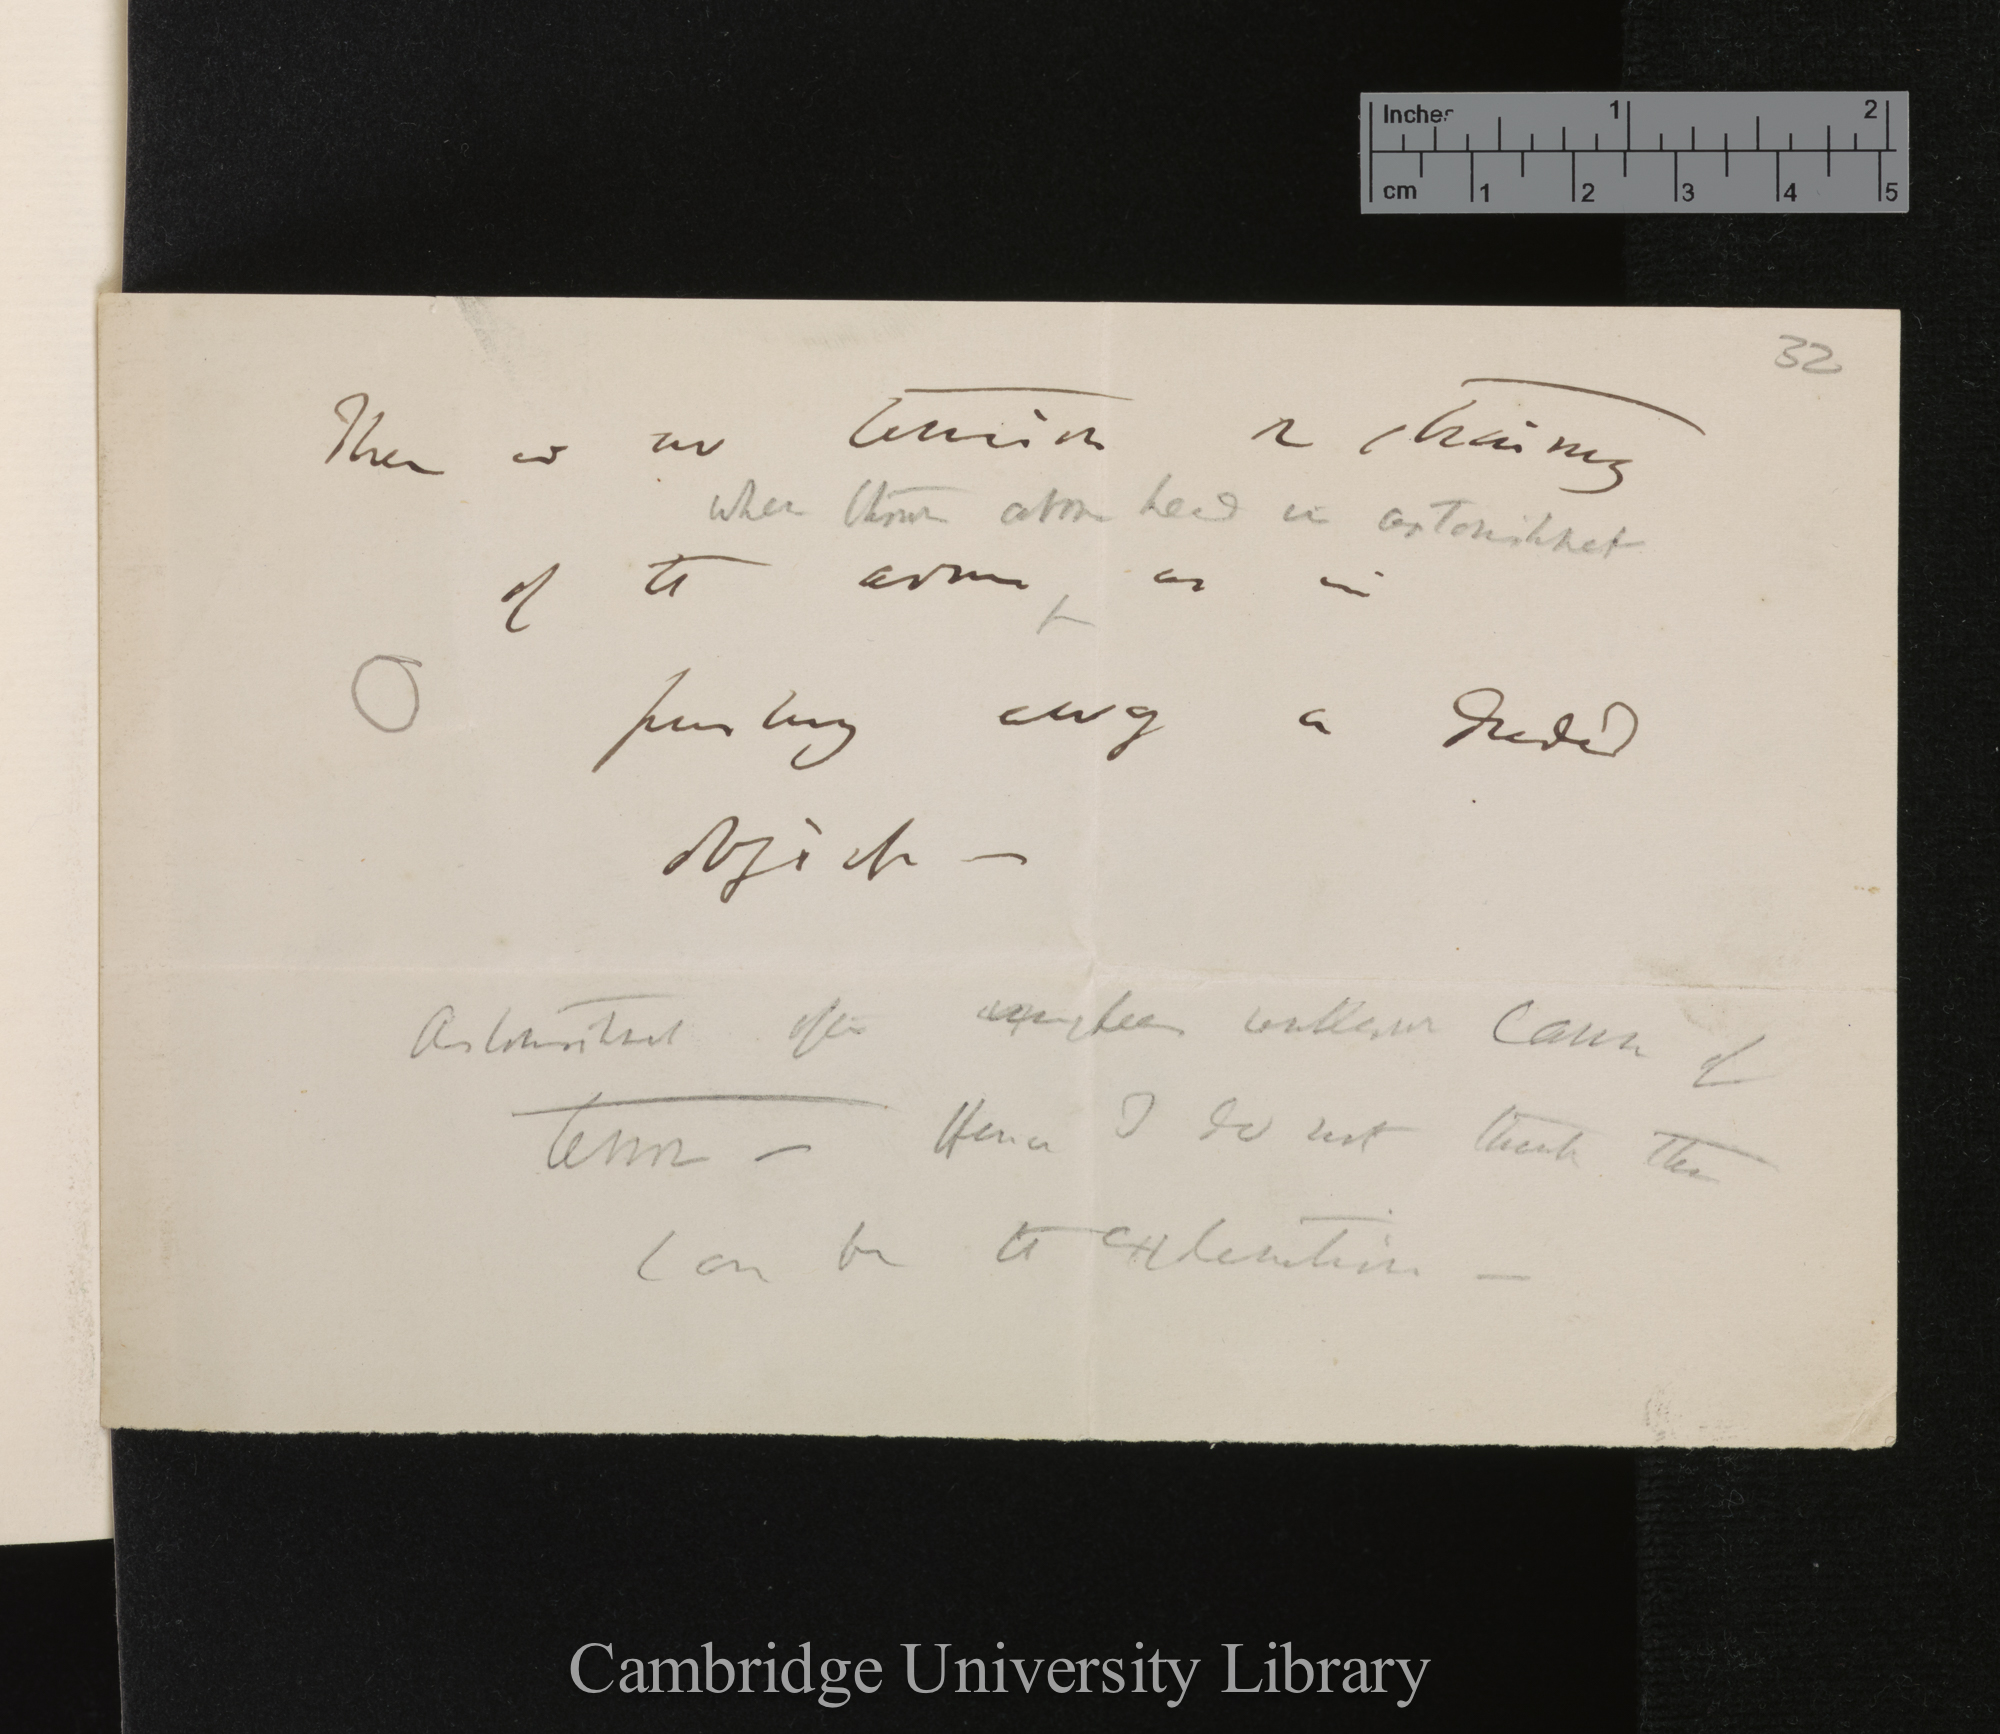 Inches 1 2
cm 1 2 3 4 5
32
There is no tension or straining
when thrown above head in astonishment
of the arms, as in
pushing away a dreaded
object —
Astonishment often without cause of
terror — Hence I do not think this
can be the explanation —
Cambridge University Library